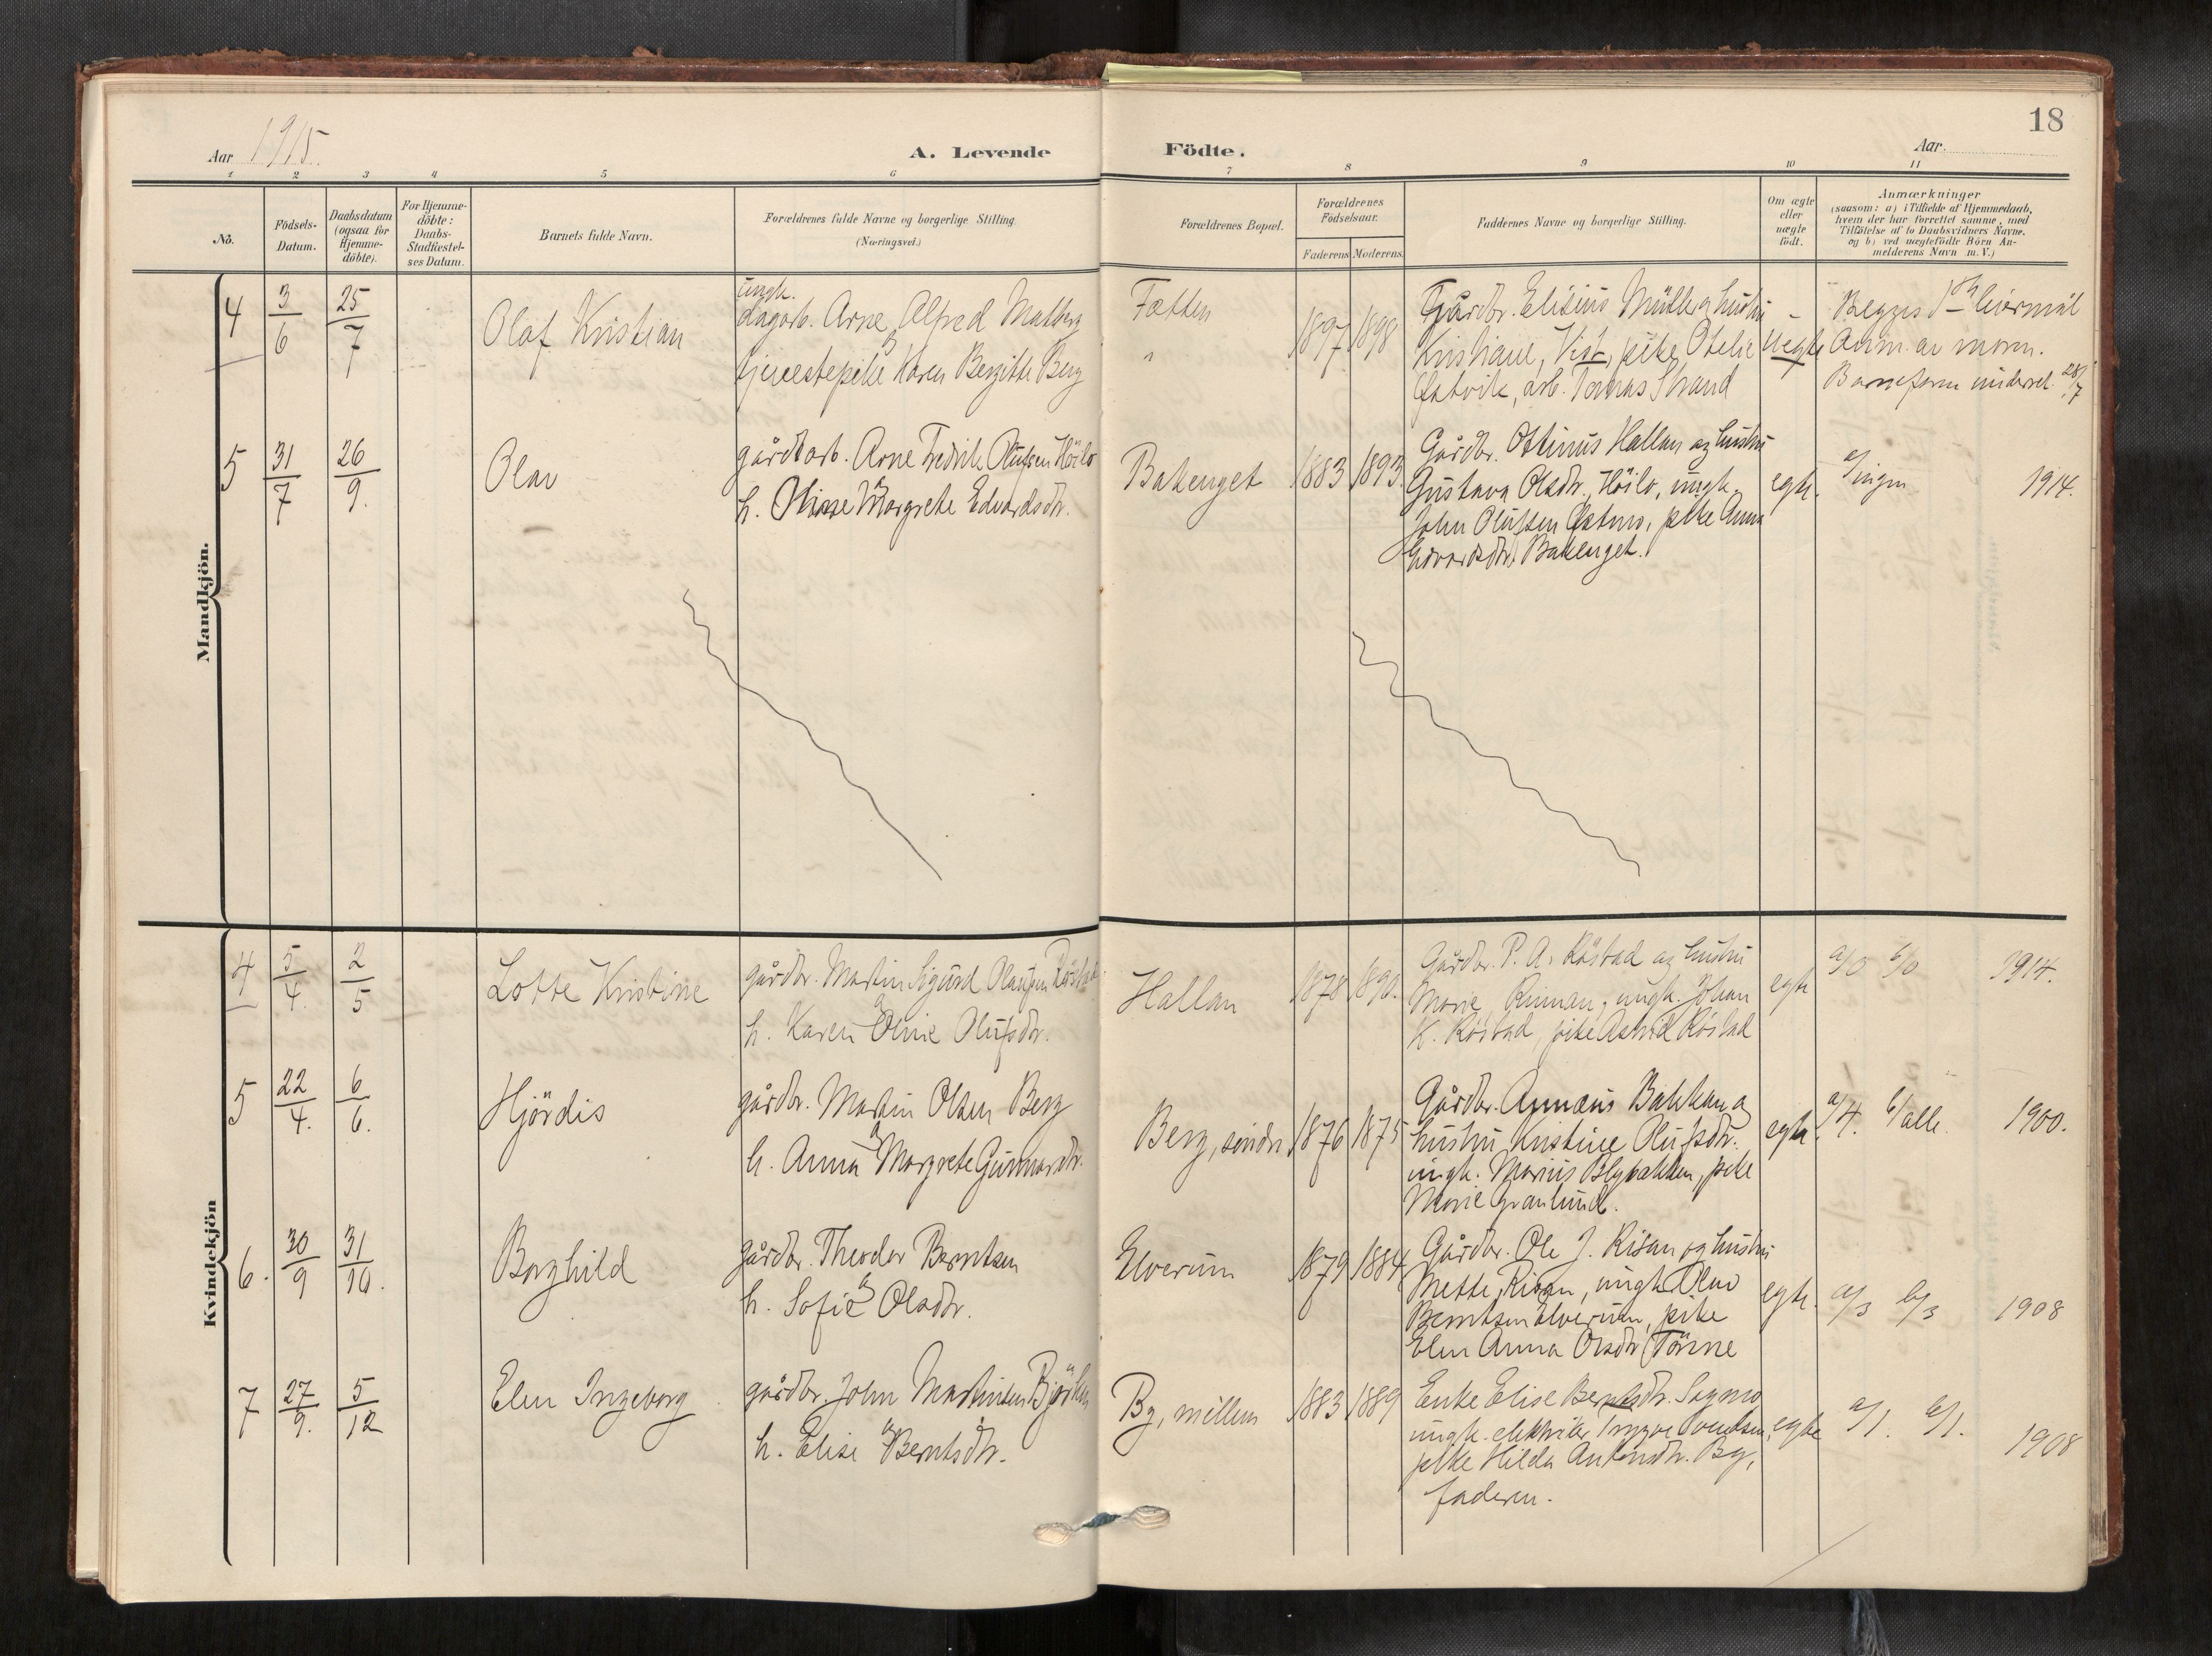 18
Aar 1915.
A. Levende
Födte.
Aar.
1 2 3 4 5 6 7 8 9 10 11
No.
Födsels-
Datum.
Daabsdatum
(ogsaa for
Hjemme-
döbte).
For Hjemme-
döbte:
Daabs-
Stadfæstel-
ses Datum.
Barnets fulde Navn.
Forældrenes fulde Navne og borgerlige Stilling.
(Næringsvei.)
Forældrenes Bopæl.
Forældrenes
Födselsaar.
Faderens Moderens
Faddernes Navne og borgerlige Stilling.
Om ægte
eller
uægte
födt.
Anmærkninger
(saasom: a) i Tilfælde af Hjemmedaab,
hvem der har forrettet samme, med
Tilföielse af to Daabsvidners Navne.
og b) ved uægtefödte Börn An-
melderens Navn m. V.)
Mandkjön.
4
3/6
25/7
Olaf Kristian
ungk.
dagarb. Arne Alfred Matberg
og
tjenestepike Karen Bergitte Berg
Fætten
"
1897 1898
Gårdbr. Elisius Müller og hustru
Kristiane, Vist, pike Otelie
arb. Tomas Strand
Uegte
Begges 1ste leiermål
Anm. av moren.
28/7
5
31/7
26/9.
Olav
gårdarb. Arne Fredrik Olufsen Höilo
og
h. Margrete Edvardsdtr.
Bakenget
1883 1893.
Gårdbr. Ottinus Hallan og hustru
Gustava Olsdtr. Höilo, ungk.
John Olufsen Østmo, pike Anna
Edvardsdtr. Bakenget.
egte.
a/ingen
1914.
Kvindekjön
4
5/4.
2/5
Lotte Kristine
gårdbr. Martin Sigurd Olausen Röstad
og
h. Karen Oline Olufsdtr.
Hallan
1878 1890.
Gårdbr. P. A. Röstad og hustru
Marie, Rinnan, ungk. Johan
K. Röstad, pike Astrid Röstad
egte
a/0 b/0
1914.
5
22/4.
6/6.
Hjördis
gårdbr. Martin Olsen Berg
og
h. Anna Margrete Gunnarsdtr.
Berg, söndre
1876 1875
Gårdbr. Annæus Bakkan og
hustru Kristine Olufsdtr.
ungk. Marius Blybakken, pike
Marie Granlund.
egte.
a/4. b/alle.
1900.
6.
30/9
31/10.
Borghild
gårdbr. Theodor Berntsen
og
h. Sofie Olsdtr.
Elverum
1879 1884
Gårdbr. Ole J. Risan og hustru
Mette, Risan, ungk. Olav
Berntsen Elverum, pike
Elen Anna Olsdtr. Tönne
egte.
a/3 b/3
1908
7
27/9.
5/12
Elen Ingeborg
gårdbr. John Martinsen
og
h. Elise Berntsdtr.
By, mellem
1883 1889
Enke Elise Berntsdtr. Sagmo,
ungk. elektriker Trygve
pike Hilda Antonsdtr. By,
faderen.
egte
a/1. b/1.
1908